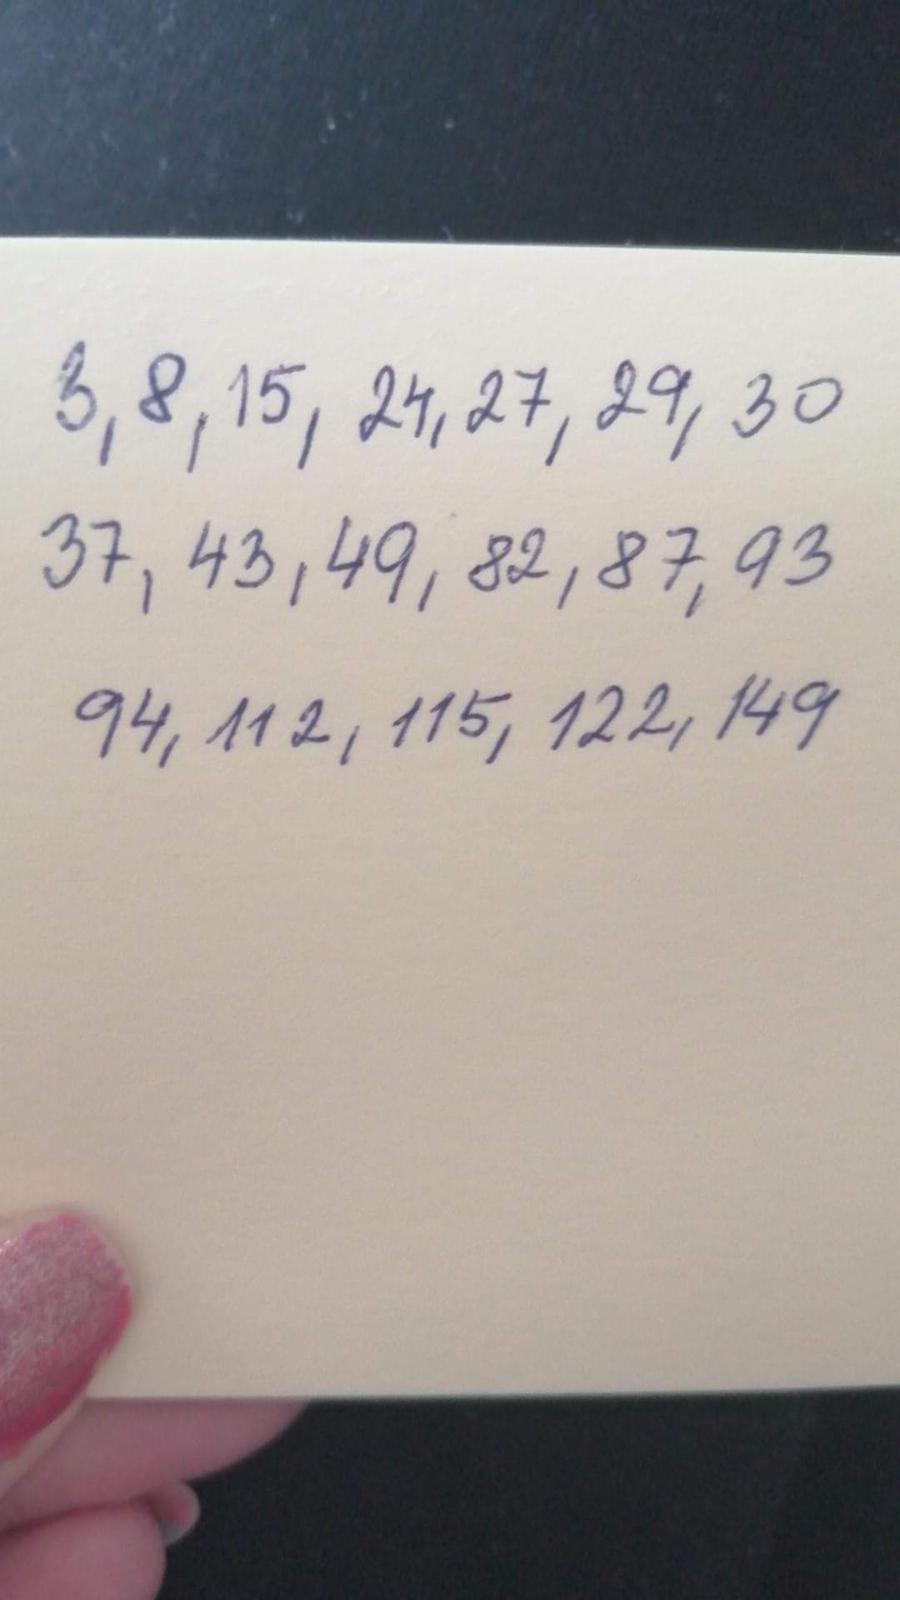 3, 8, 15, 24, 27, 29, 30
37, 43, 49, 82, 87, 93
94, 112, 115, 122, 149